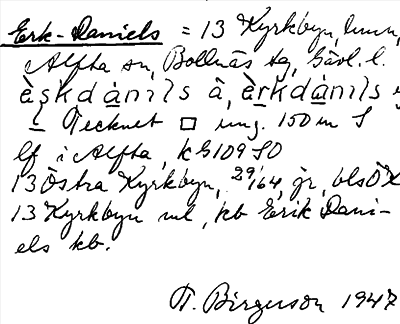 Erk-Daniels = 13 Kyrkbyn, hmn,
Alfta sn, Bollnäs tg, Gävl. l.
ὲṣkdàni̇̀ls å, ὲrkdàni̇̀ls
⊥ Tecknet □ ung. 150 m S
lf i Alfta, kG109 SO
13 Östra Kyrkbyn, 29/64, gr, bls ÖK
13 Kyrkbyn ml, kb Erik Dani-
els kb.
T. Birgerson 1947